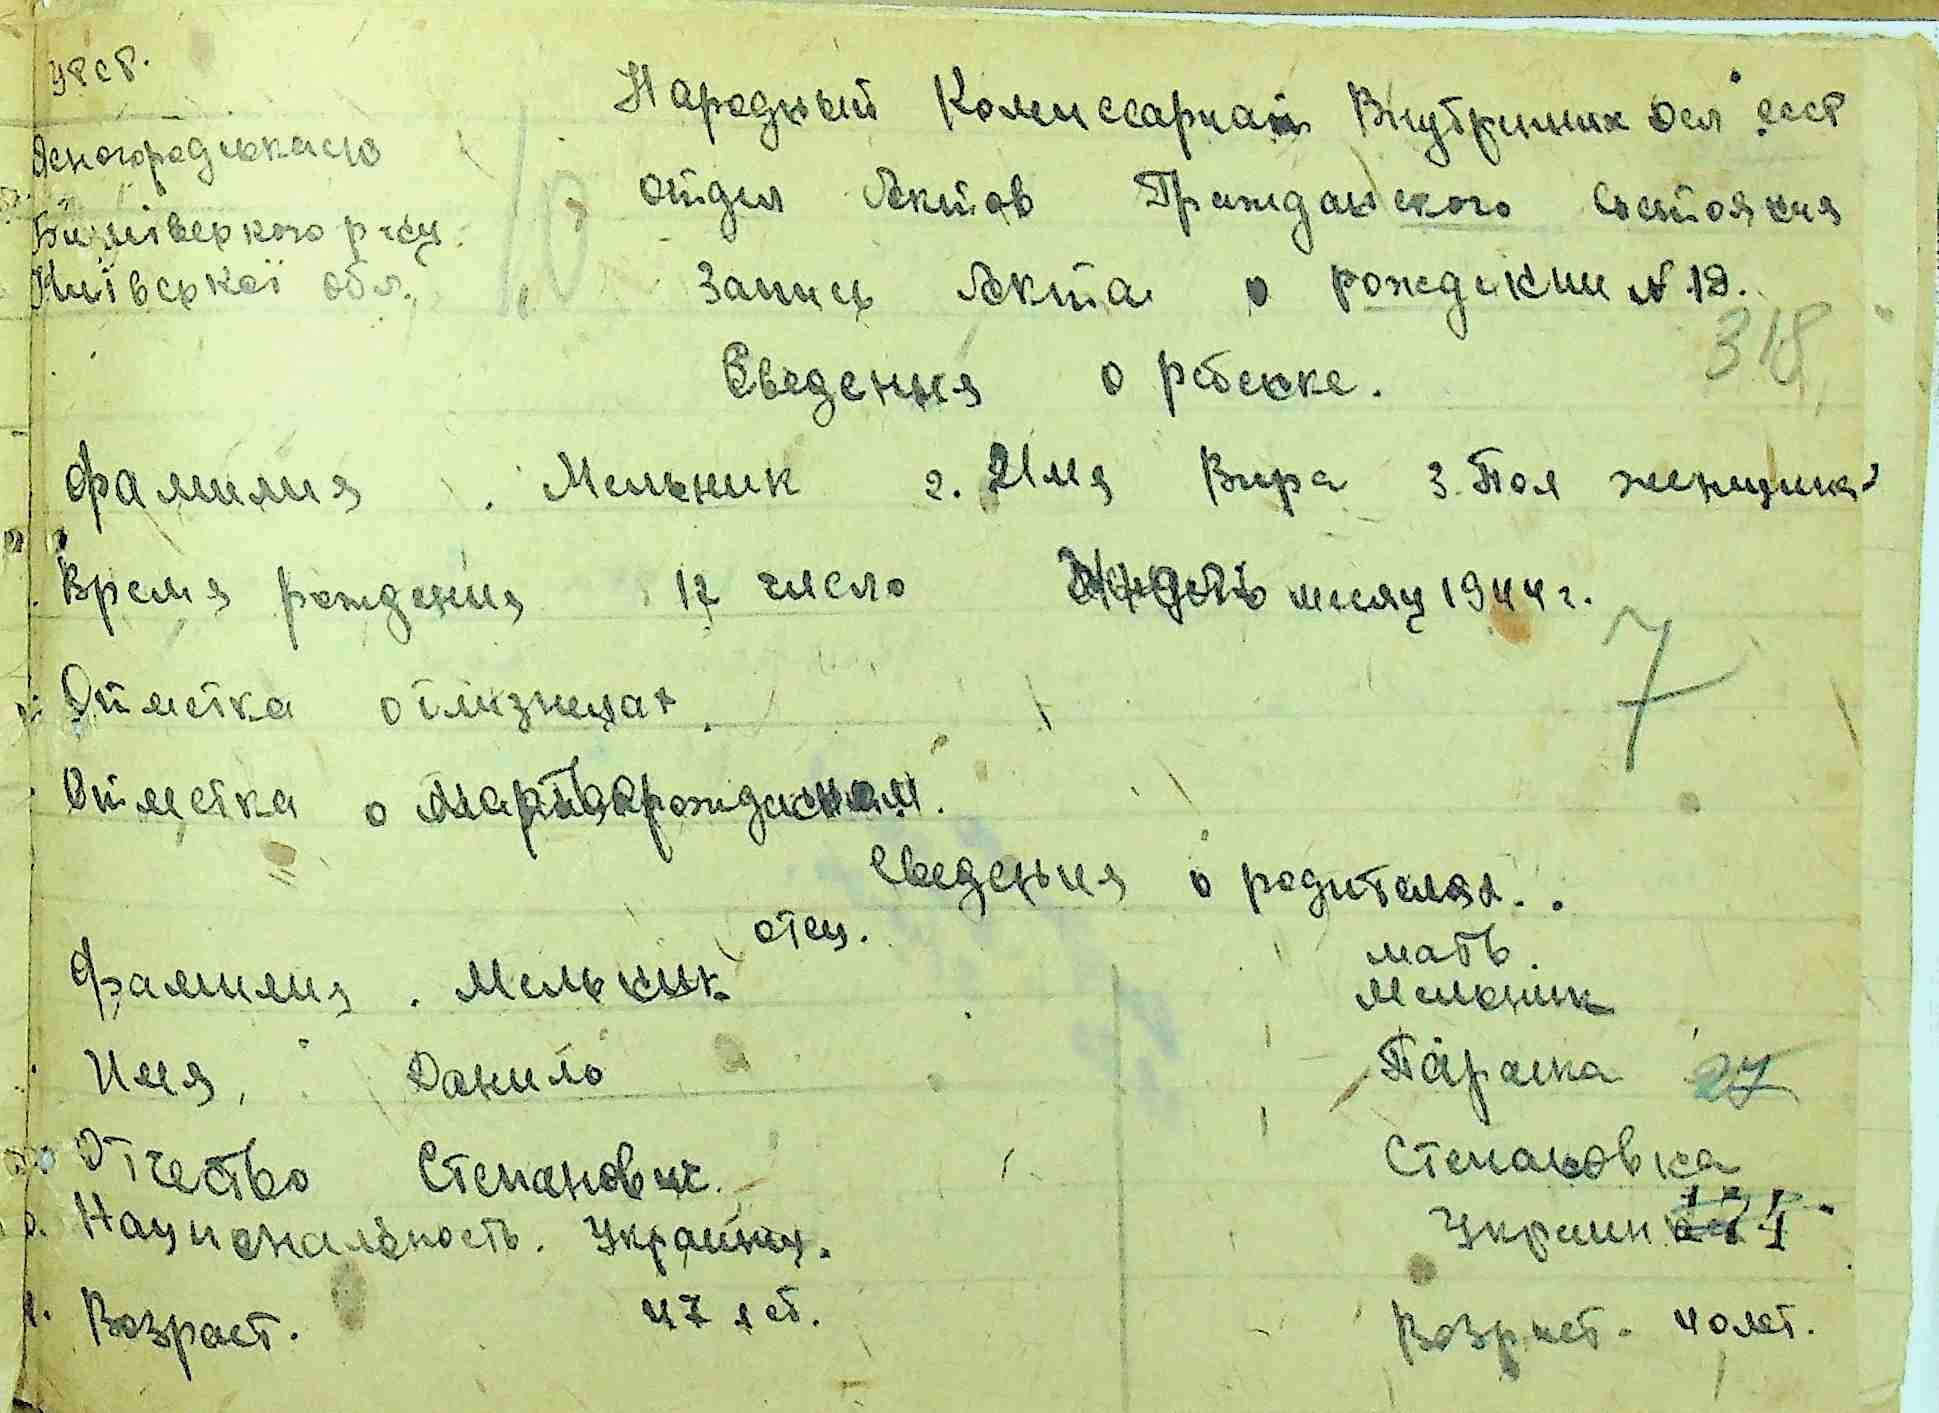 УРСР.
Ясногородською
рку
Київської обл.
Народный Комиссариат Внутриних Дел СССР
Отдел Актов Гражданского Состояния
Запись Акта о рождении № 19.
318
Сведения о ребенке.
Фамилия. Мельник 2. Имя Вира 3. Пол женщина
Время рождения 17 число месяц 1944 г.
7
Отметка о близнецах.
Отметка о мартворожденном.
Сведения о родителях.
отец. мать.
Фамилия. Мельник Мельник
Имя, Данило Параска 27
Отчество Степанович. Степановна
Национальность. Украинц. Украин
Возраст. 47 лет. Возраст - 40 лет.